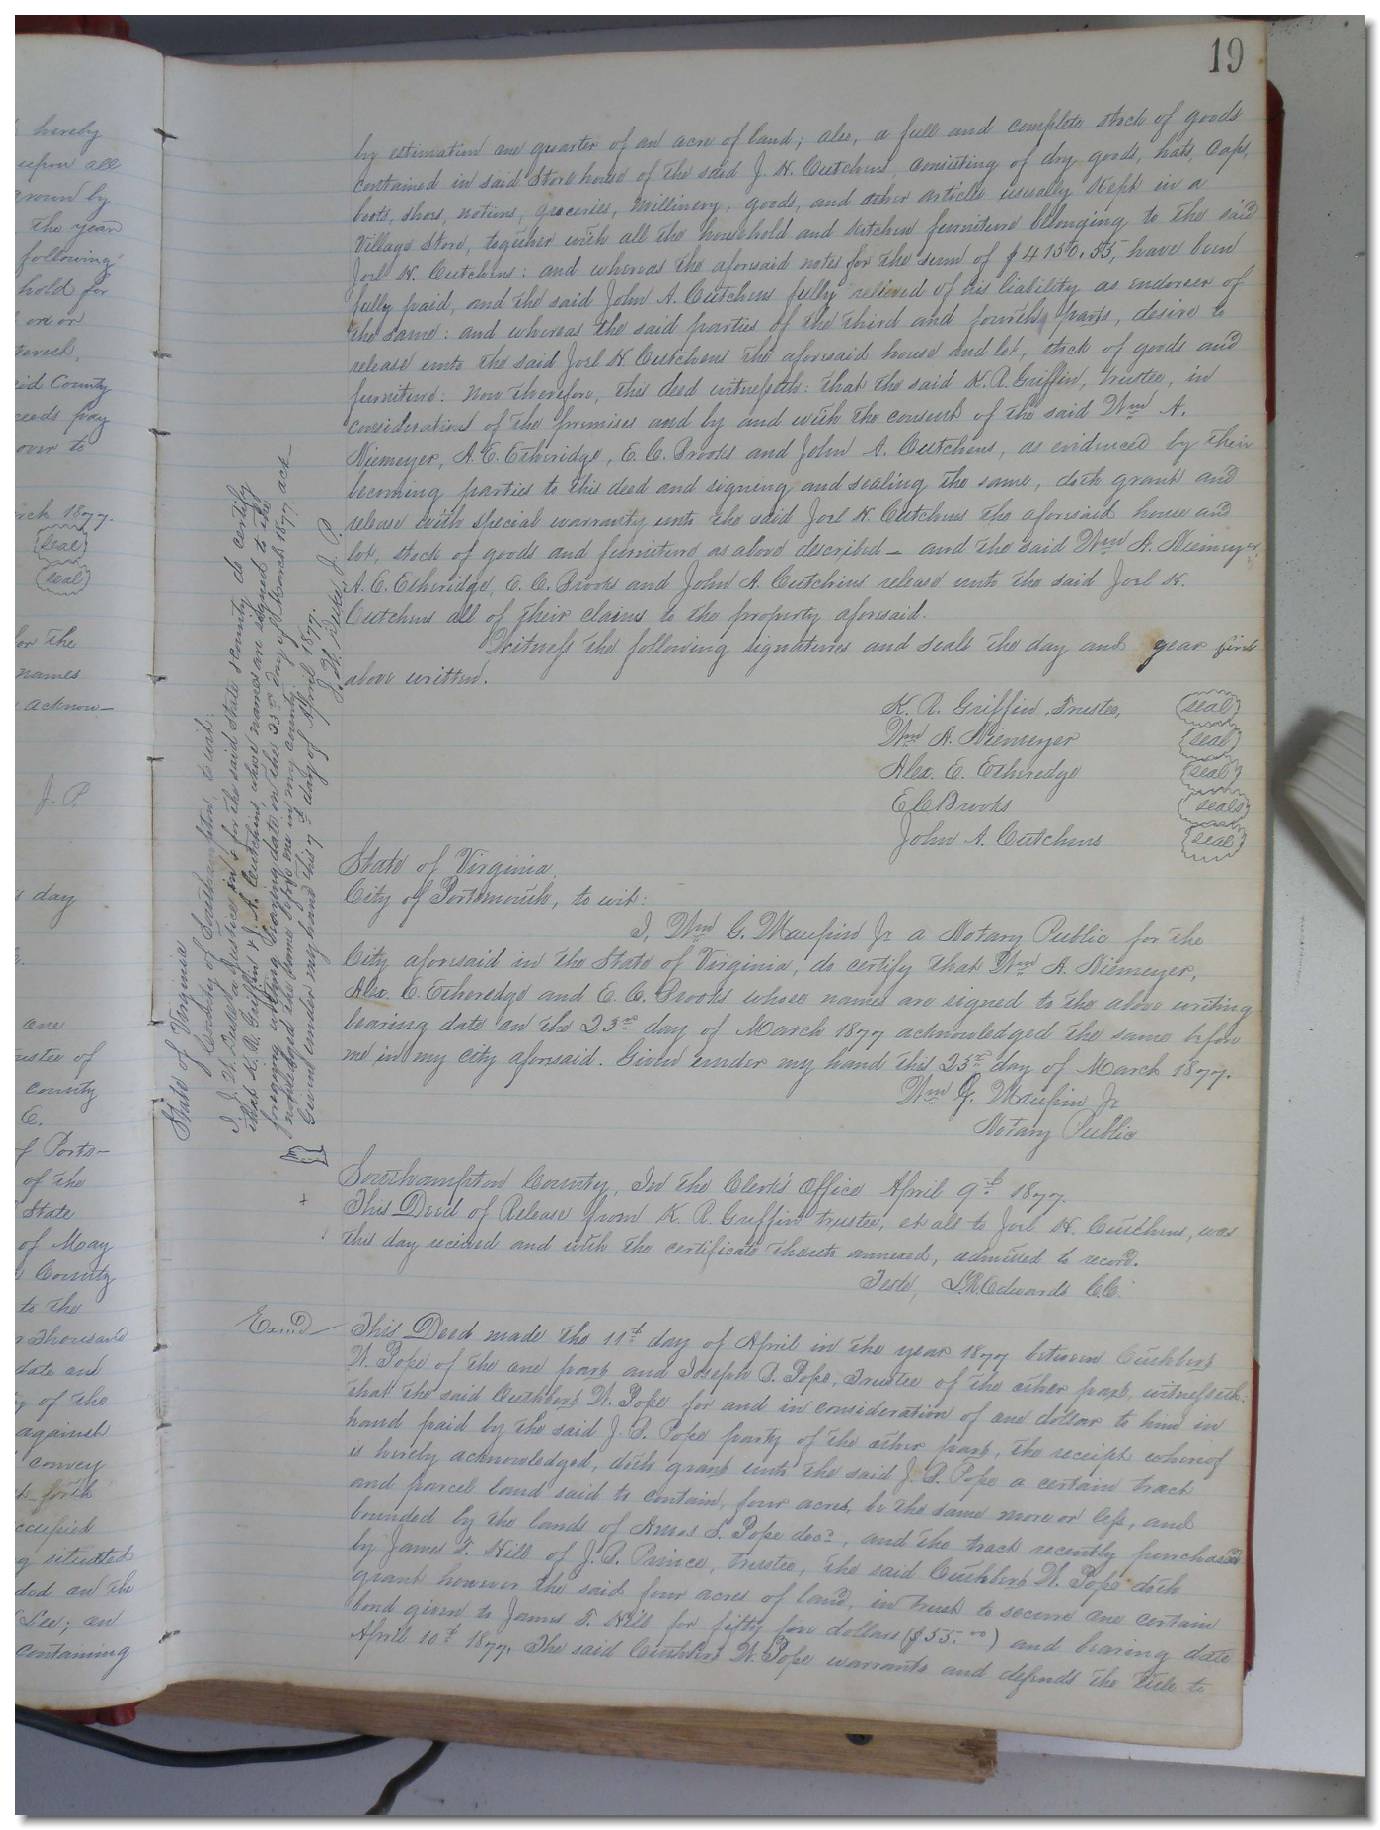 19
hereby
upon all
grown by
the year
following
hold for
on or
said County
pay
over to
March 1877.
(seal)
(seal)
for the
names
acknow-
J. P.
day
one
trustee of
county
E.
of Ports-
of the
State
of May
County
to the
thousand
date and
of the
against
convey
forth
occupied
situated
and on the
Lee; an
containing
by estimation one quarter of an acre of land; also, a full and complete stock of goods
contained in said Store house of the said J. H. Cutchins, consisting of dry goods, hats, caps,
boots, shoes, notions, groceries, millinery goods, and other articles usually kept in a
Village Store, together with all the household and kitchen furniture belonging to the said
Joel H. Cutchins: and whereas the aforesaid notes for the sum of $4150.55, have been
fully paid, and the said John A. Cutchins fully relieved of his liability as endorser of
the same: and whereas the said parties of the third and fourth parts, desire to
release unto the said Joel H. Cutchins the aforesaid house and lot, stock of goods and
furniture: Now therefore, this deed witnesseth: that the said K. R. Griffin, trustee, in
consideration of the premises and by and with the consent of the said Wm A.
Niemeyer, A. E. Etheridge, E. C. Brooks and John A. Cutchins, as evidenced by their
becoming parties to this deed and signing and sealing the same, doth grant and
release with special warranty unto the said Joel H. Cutchins the aforesaid house and
lot, stock of goods and furniture as above described - and the said Wm A. Niemeyer,
A. E. Etheridge, E. C. Brooks and John A. Cutchins release unto the said Joel H.
Cutchins all of their claims to the property aforesaid.
Witness the following signatures and seals the day and year first
above written.
K. R. Griffin, Trustee, (seal)
Wm A. Niemeyer (seal)
Alex. E. Etheredge (seal)
E C Brooks (seal)
John A. Cutchins (seal)
State of Virginia
County of Southampton, to wit:
I, J. W. a Justice in & for the said State & County do certify
that K. R. Griffin & J. A. Cutchins, whose names are signed to the
foregoing writing bearing date on the 23rd day of March 1877 ack
nowledged the same before me in my county.
Given under my hand this 7th day of April 1877.
J. W. J. P.
State of Virginia,
City of Portsmouth, to wit:
I, Wm G. Maupin Jr a Notary Public for the
City aforesaid in the State of Virginia, do certify that Wm A. Niemeyer,
Alex. E. Etheredge and E. C. Brooks whose names are signed to the above writing
bearing date on the 23rd day of March 1877 acknowledged the same before
me in my city aforesaid. Given under my hand this 23rd day of March 1877.
Wm G. Maupin Jr
Notary Public
Southampton County, In the Clerk's Office April 9th 1877.
This Deed of Release from K. R. Griffin trustee, et als to Joel H. Cutchins, was
this day received and with the certificate thereto annexed, admitted to record.
Teste, L. R. Edwards C. C.
Exmd
This Deed made the 11th day of April in the year 1877 between Cuthbert
W. Pope of the one part and Joseph S. Pope, Trustee of the other part, witnesseth:
that the said Cuthbert W. Pope for and in consideration of one dollar to him in
hand paid by the said J. S. Pope party of the other part, the receipt whereof
is hereby acknowledged, doth grant unto the said J. S. Pope a certain tract
and parcel land said to contain, four acres, be the same more or less, and
bounded by the lands of Amos S. Pope decd, and the track recently purchased
by James T. Hill of J. S. Prince, trustee, the said Cuthbert W. Pope doth
grant however the said four acres of land, in trust to secure one certain
bond given to James T. Hill for fifty five dollars ($55.00) and bearing date
April 10th 1877, The said Cuthbert W. Pope warrants and defends the title to